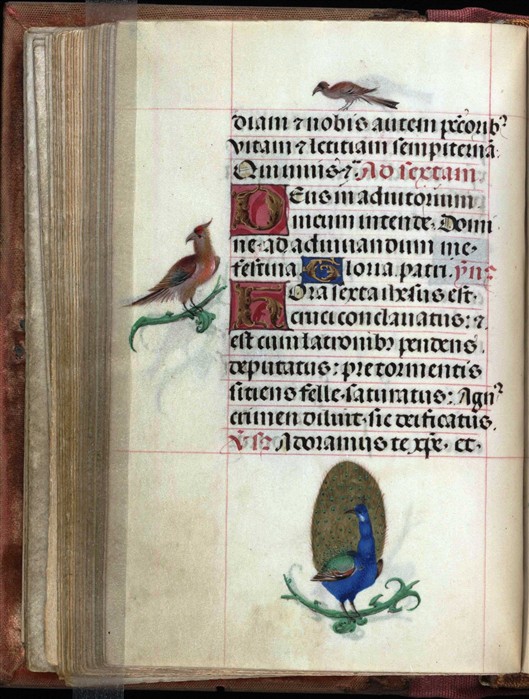 diam ⁊ nobis autem p̄ctoribꝰ
vitam ⁊ letitiam sempiternā
Qui vivis ⁊c̄ Ad sextam
Deus in adiutorium
meum intende. Domi
ne ad adiuvandum me
festina. Gloria patri. ỹnꝰ
Hora sexta ihesus est
cruci conclavatus: ⁊
est cum latronibꝰ pendens
deputatus: pre tormentis
sitiens felle saturatus: Agnꝰ
crimen diluit sic deificatus.
v̄sꝰ Adoramus te xp̄e. ct.